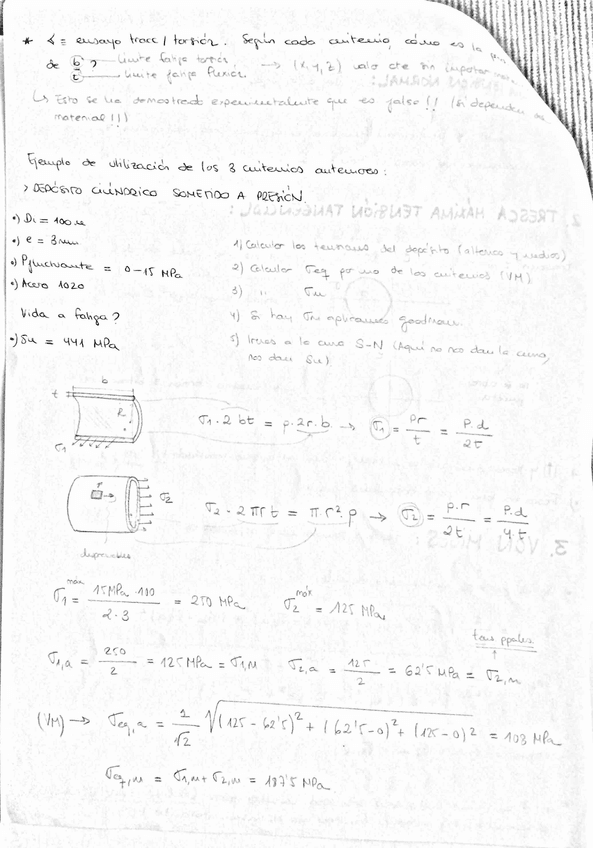 * α = ensayo tracc / torsión. Según cada criterio, cómo es la
de b? límite fatiga torsión
t límite fatiga flexión → valor cte sin importar
↳ Esto se ha demostrado experimentalmente que es falso!! (si dependen
material!!!)
Ejemplo de utilización de los 3 criterios anteriores:
> DEPÓSITO CILÍNDRICO SOMETIDO A PRESIÓN
•) Di = 100
•) e = 3mm
•) Pfluctuante = 0-15 MPa
•) Acero 1020
Vida a fatiga?
•) Su = 441 MPa
1) Calcular las tensiones del depósito (alternas y medias)
2) Calcular σeq por uno de los criterios (VM)
3) " σm
4) Si hay σm aplicamos goodman.
5) Irnos a la curva S-N (Aquí no nos dan la curva,
nos dan Su)
b
t
R
σ1
σ1 · 2bt = p·2r·b → σ1 = pr/t = P.d/2t
σ2
σ2 · 2πrt = π·r²·p → σ2 = p.r/2t = P.d/4.t
σ1 máx = 15MPa·100 / 2·3 = 250 MPa σ2 máx = 125 MPa
tens ppales
σ1,a = 250/2 = 125MPa = σ1,m σ2,a = 125/2 = 62'5 MPa = σ2,m
(VM) → σeq,a = 1/√2 √(125-62'5)² + (62'5-0)² + (125-0)² = 103 MPa
σeq,m = σ1,m + σ2,m = 187'5 MPa